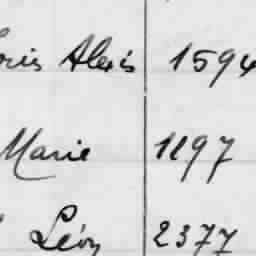 Louis Alexis 1594
Marie 1197
Léon 2377